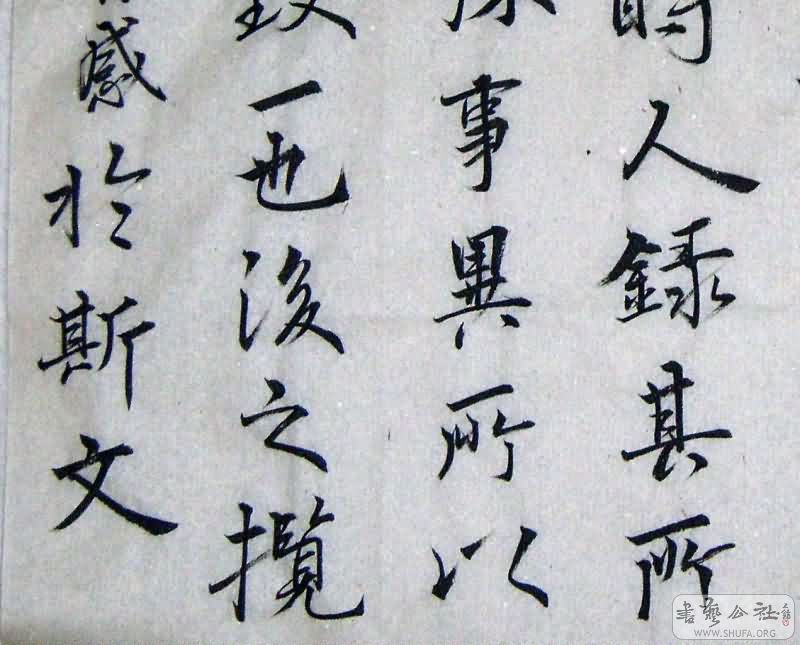 時人錄其所
殊事異所以
致一也後之攬
感於斯文
書藝公社
WWW.SHUFA.ORG